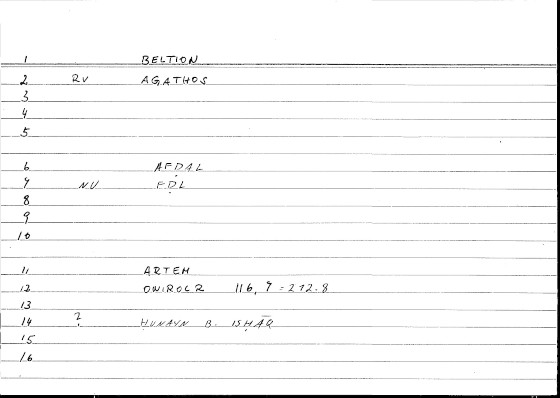 1 BELTION
2 RV AGATHOS
3
4
5
6 AFḌAL
7 NU FḌL
8
9
10
11 ARTEM
12 ONIROCR 116, 7 = 212.8
13
14 ? ḤUNAYN B. ISḤĀQ
15
16